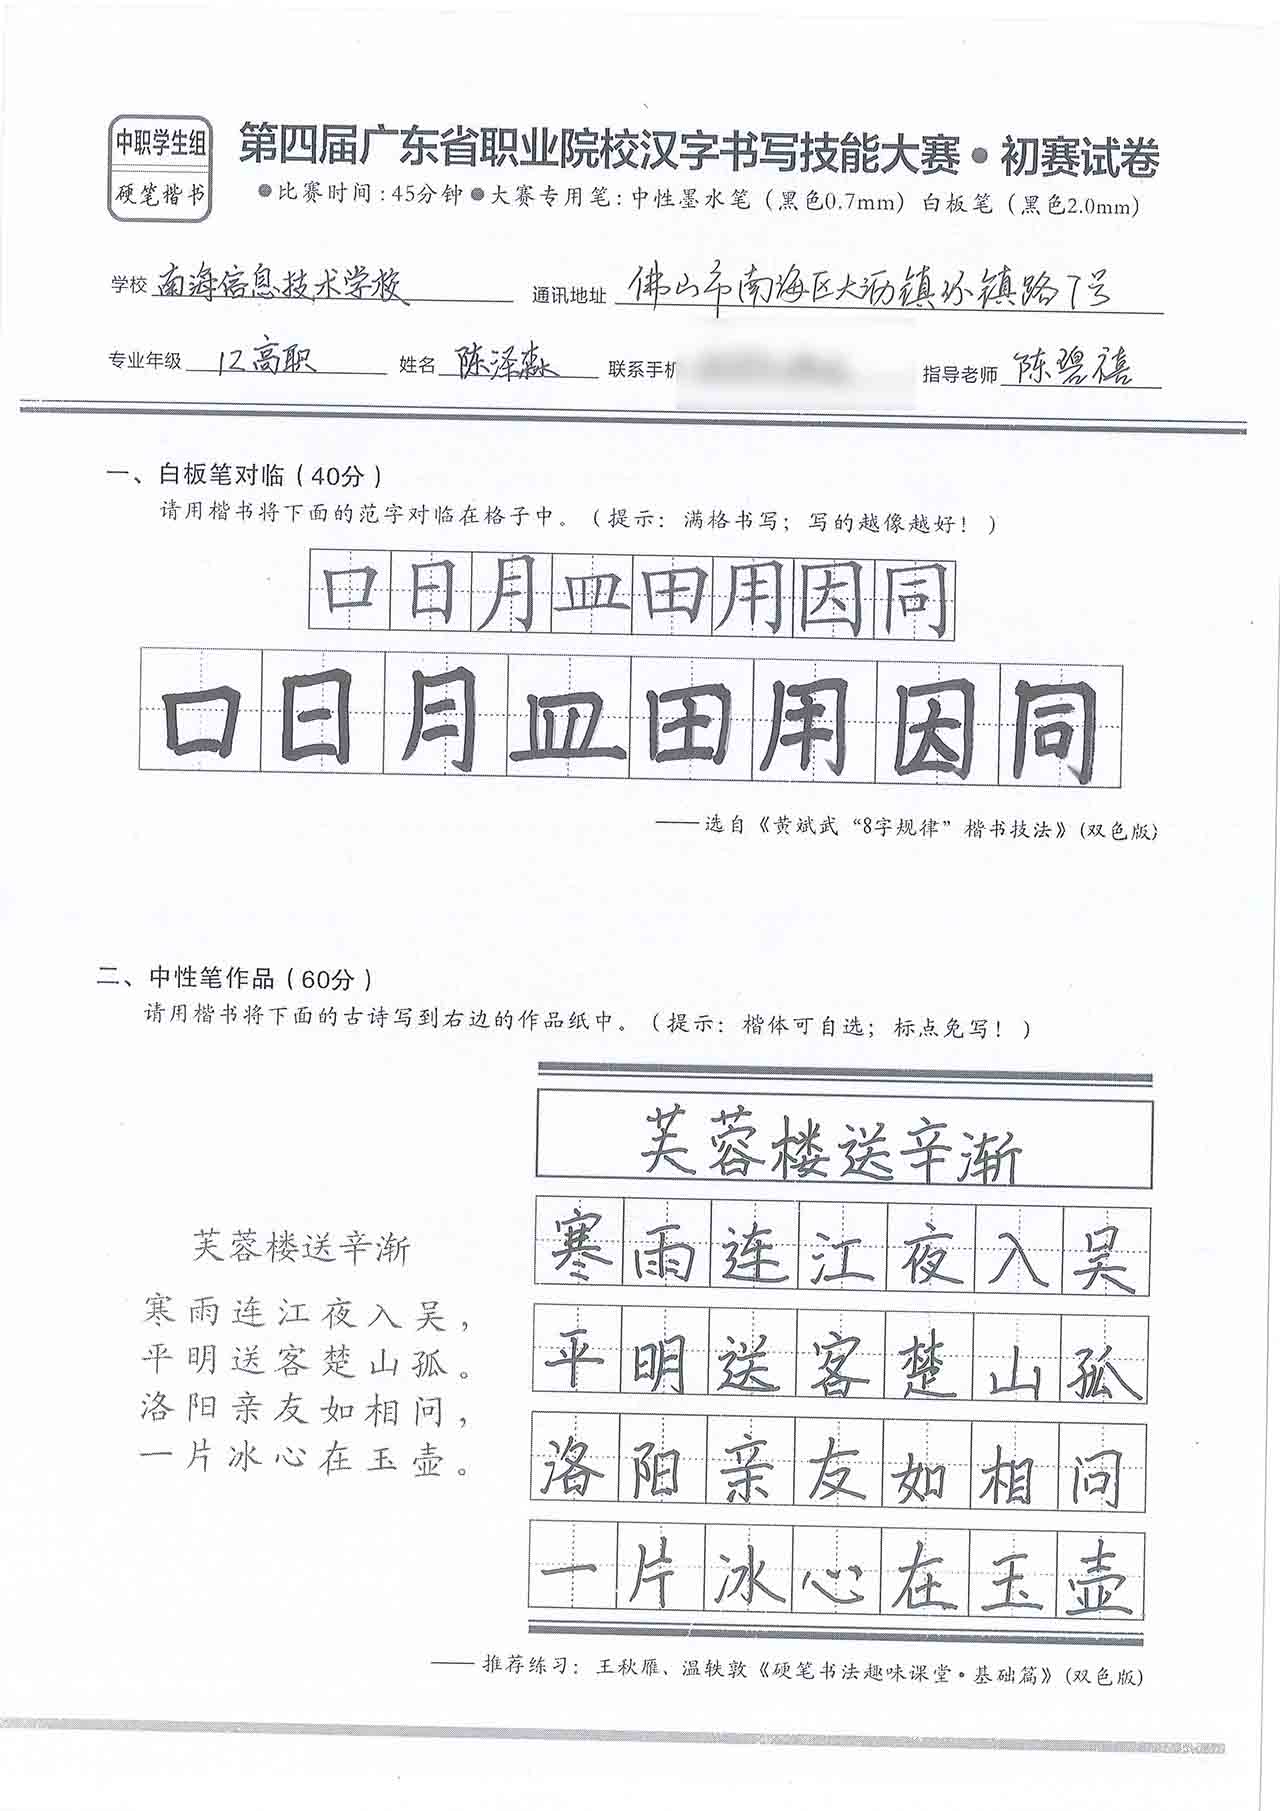 中职学生组
硬笔楷书
第四届广东省职业院校汉字书写技能大赛•初赛试卷
●比赛时间:45分钟●大赛专用笔:中性墨水笔（黑色0.7mm）白板笔（黑色2.0mm）
学校 南海信息技术学校 通讯地址 佛山市南海区大沥镇环镇路7号
专业年级 12高职 姓名 陈泽淼 联系手机 指导老师 陈碧禧
一、白板笔对临（40分）
请用楷书将下面的范字对临在格子中。（提示：满格书写；写的越像越好！）
口日月皿田用因同
口日月皿田用因同
——选自《黄斌武“8字规律”楷书技法》(双色版)
二、中性笔作品（60分）
请用楷书将下面的古诗写到右边的作品纸中。（提示：楷体可自选；标点免写！）
芙蓉楼送辛渐
寒雨连江夜入吴，
平明送客楚山孤。
洛阳亲友如相问，
一片冰心在玉壶。
芙蓉楼送辛渐
寒雨连江夜入吴
平明送客楚山孤
洛阳亲友如相问
一片冰心在玉壶
——推荐练习：王秋雁、温轶敦《硬笔书法趣味课堂·基础篇》(双色版)